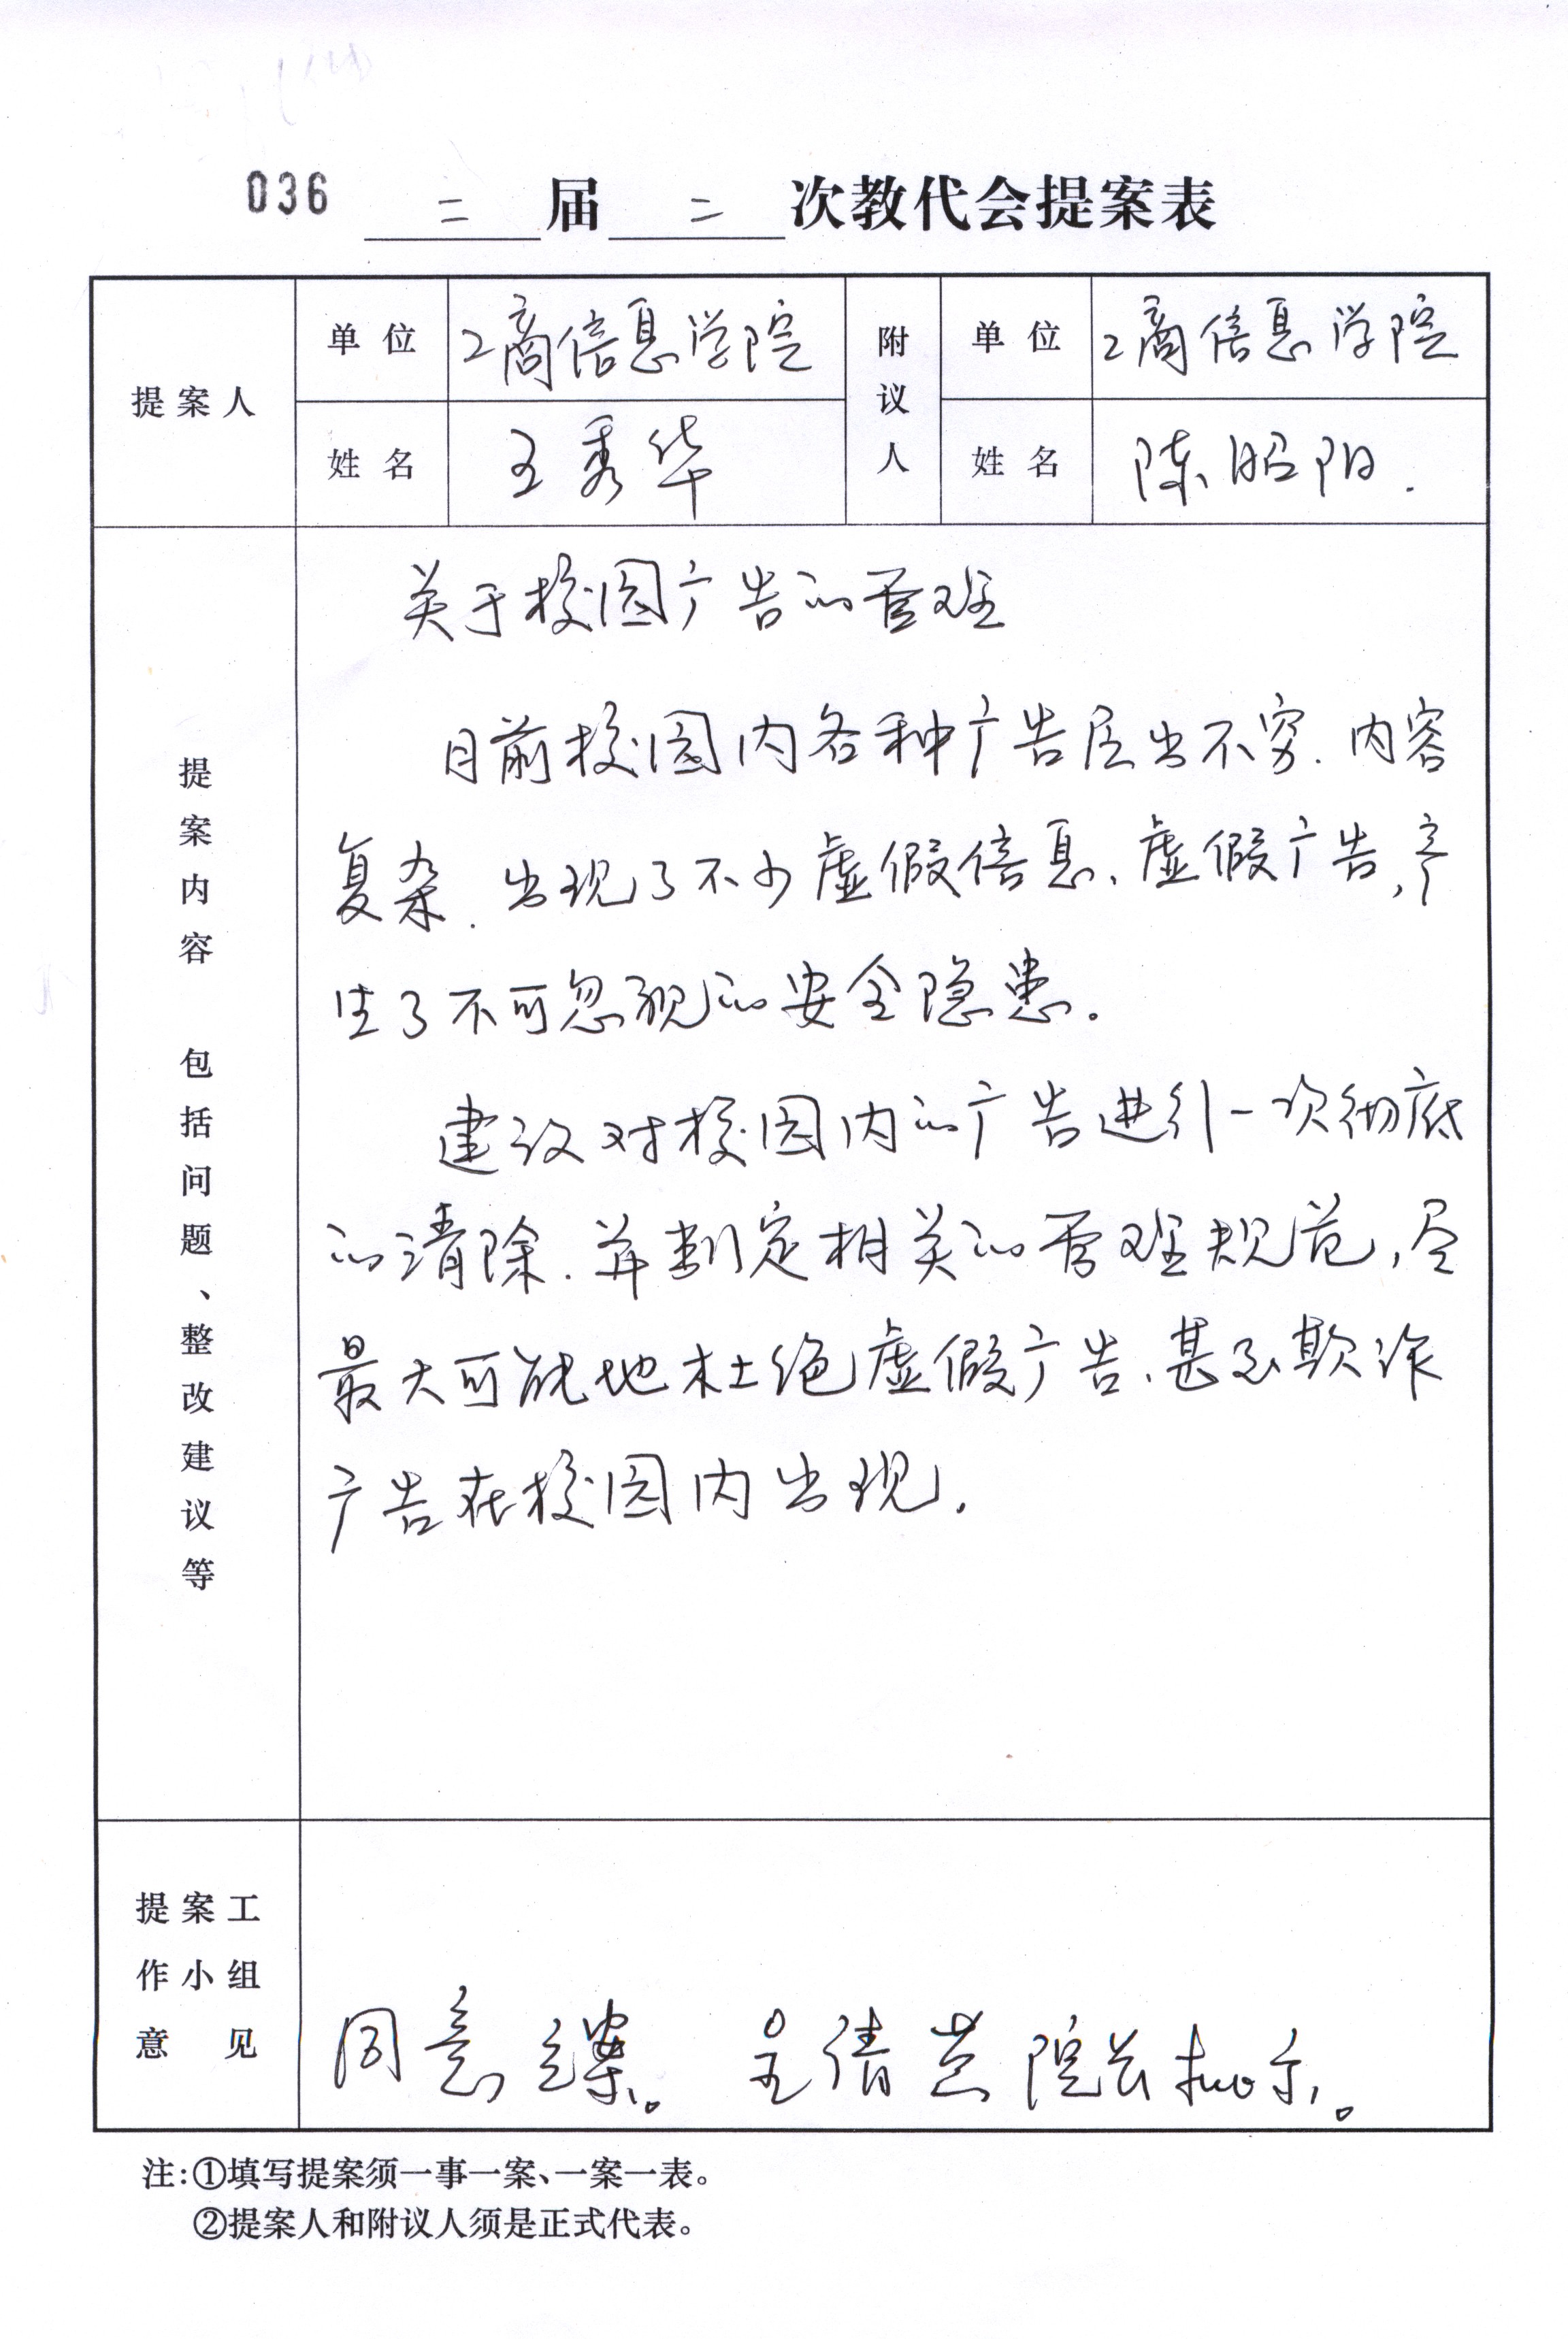 036 二届二次教代会提案表
提案人 单位 工商信息学院 附议人 单位 工商信息学院
姓名 王秀华 姓名 陈昭阳.
提案内容 包括问题、整改建议等
关于校园广告的管理
目前校园内各种广告层出不穷.内容
复杂.出现了不少虚假信息、虚假广告,产
生了不可忽视的安全隐患。
建议对校园内的广告进行一次彻底
的清除.并制定相关的管理规范,尽
最大可能地杜绝虚假广告、甚至欺诈
广告在校园内出现.
提案工作小组意见
同意立案。呈倩 院长批示。
注:①填写提案须一事一案、一案一表。
②提案人和附议人须是正式代表。